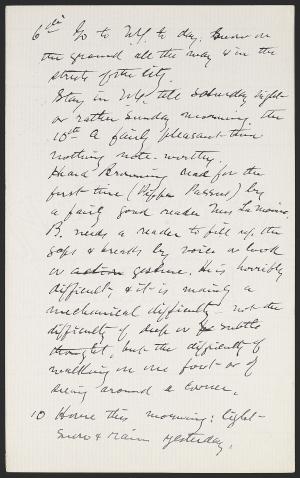 6th Go to N.Y. to day, snow on
the ground all the way & in the
streets of the city.
Stay in N.Y. till Saturday night
or rather Sunday morning, the
10th A fairly pleasant time
nothing note-worthy.
Heard Browning read for the
first time (Pippa Passes) by
a fairly good reader Miss
B. needs a reader to fill up the
gaps & breaks by voice or look
or action gesture. He is horribly
difficult, & it is mainly a
mechanical difficulty – not the
difficulty of deep or subtle
thought, but the difficulty of
walking on one foot or of
seeing around a corner.
10 Home this morning: light
snow & rain yesterday.